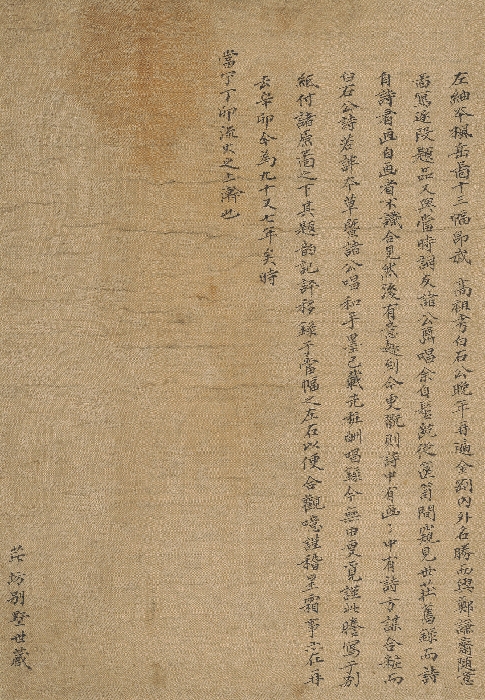 左紬本楓岳啚十三幅卽我 高祖考白石公晩年再遊金剛內外名勝而與鄭謙齋隨意
啚寫逐段題品又與當時詞友諸公聯唱余自髫齔從篋笥間窺見世莊舊綠而詩
自詩啚自画者不識合見然後有意趣剞今更翫則詩中有画画中有詩方謀合粧而
白石公詩若詳本草曁諸公唱和手墨已載先輩酬唱錄今無由更覓謹此謄寫于別
紙付諸原啚之下其題韵記評移錄于當幅之左右以便合觀噫謹稽星霜事一在再
去辛卯今爲九十又七年矣時
當宁丁卯流火之上澣也
茈坊別墅世藏